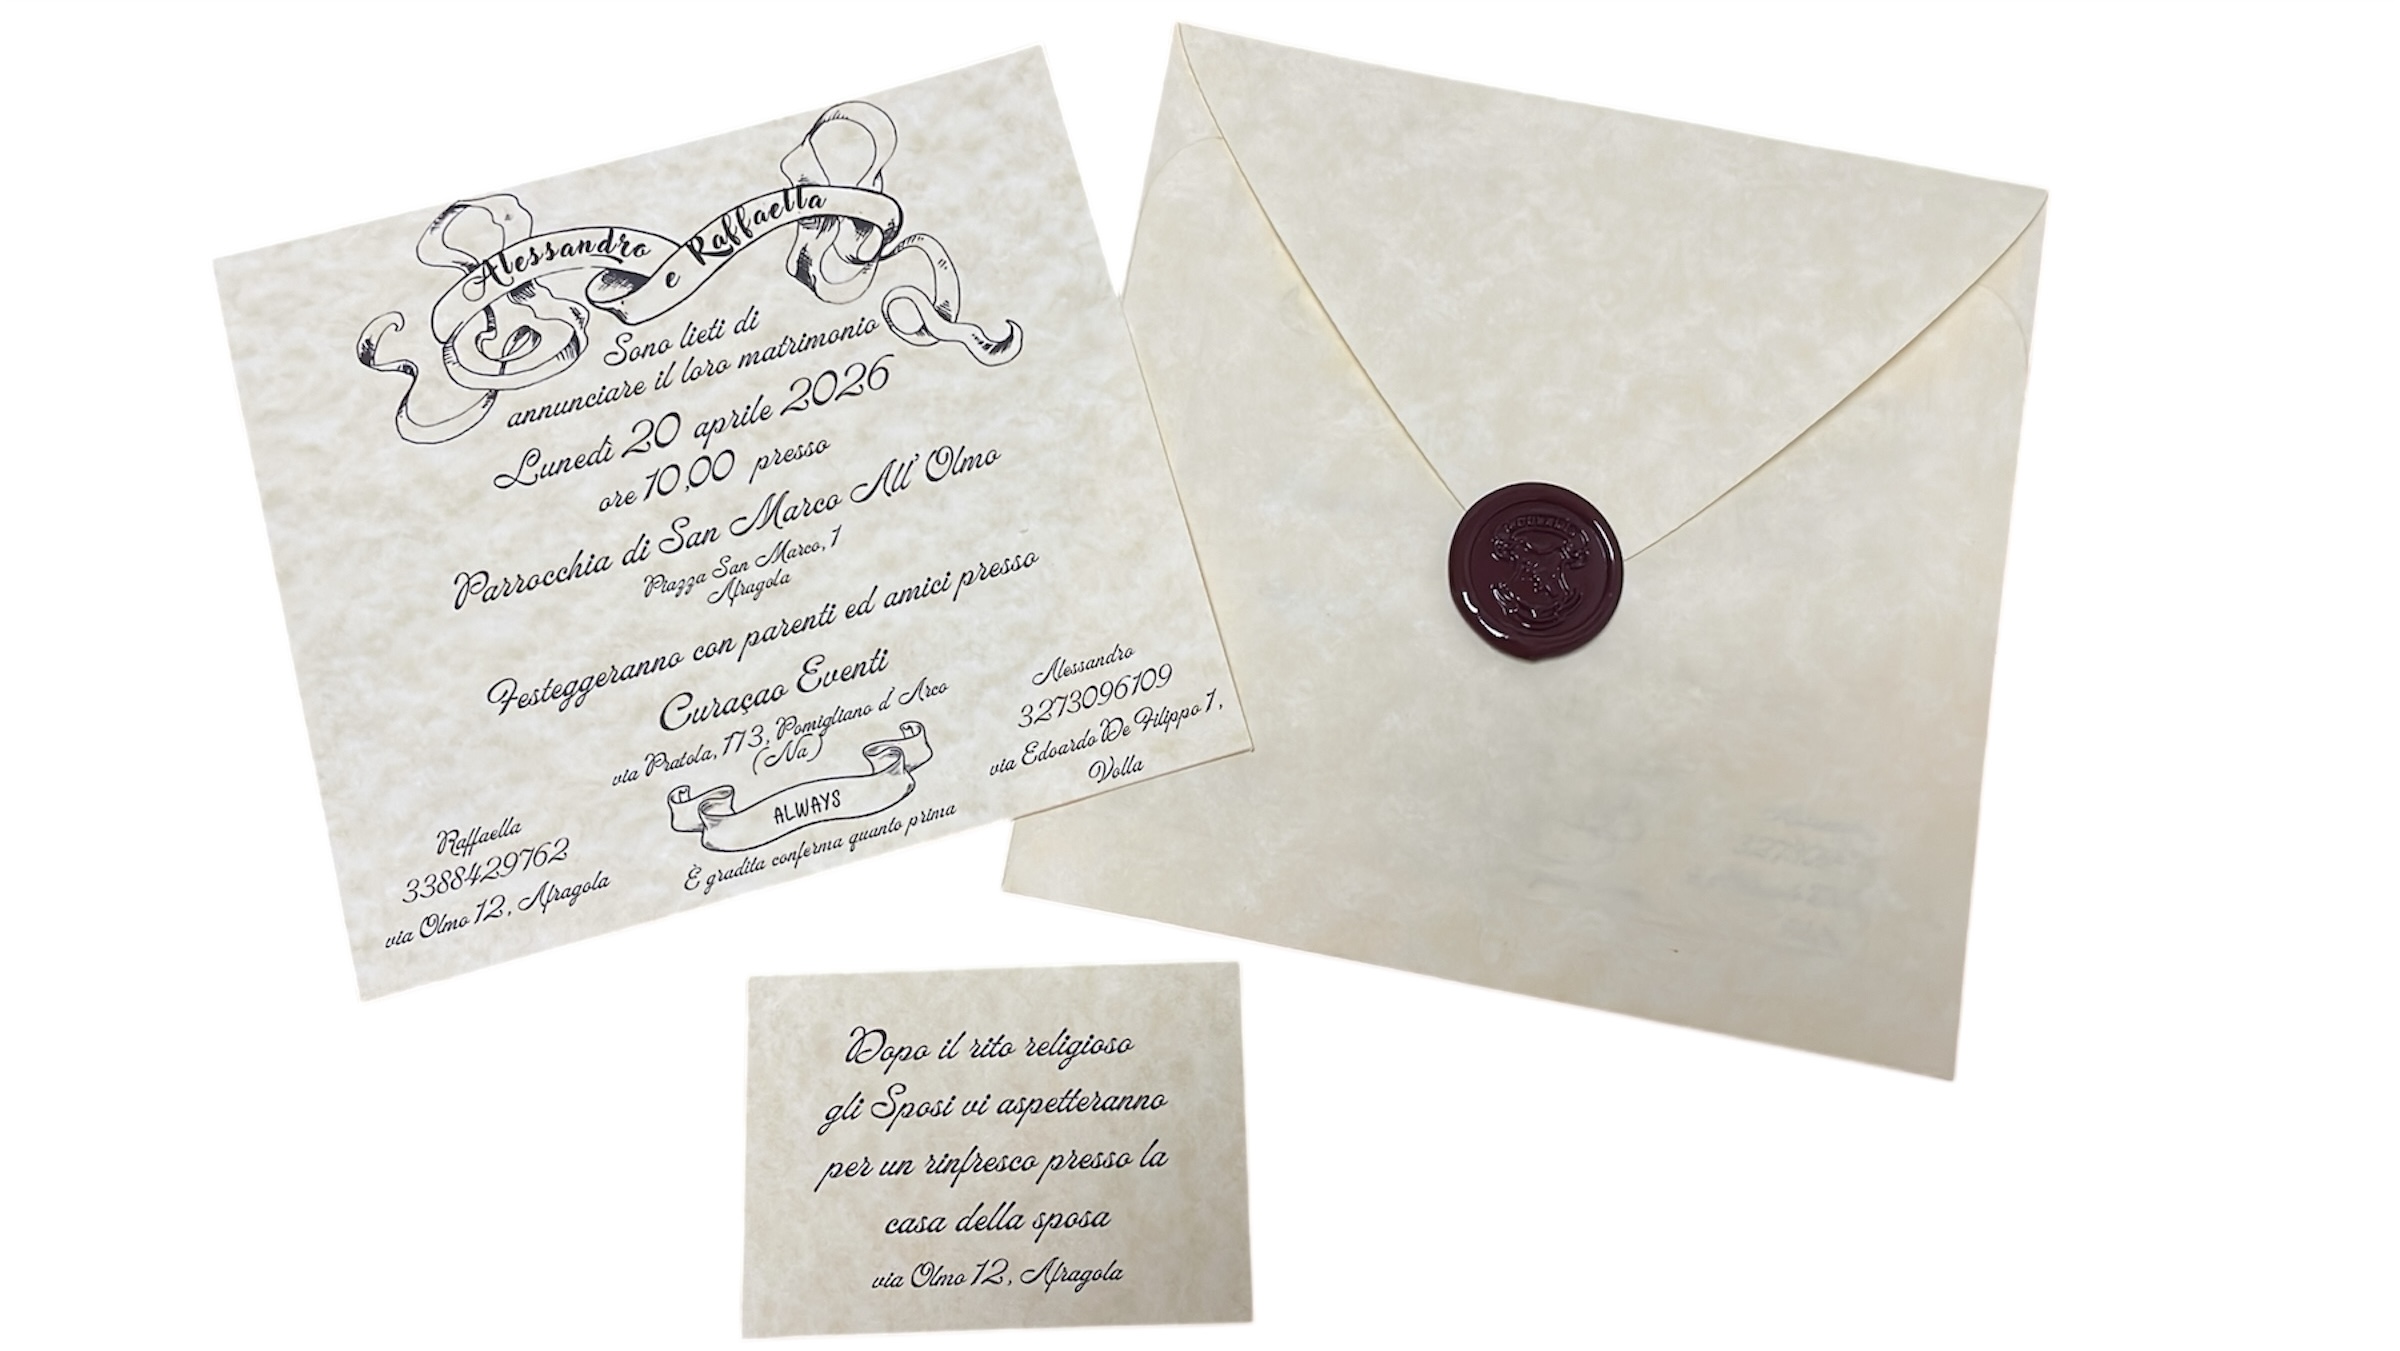 Alessandro
e Raffaella
Sono lieti di
annunciare il loro matrimonio
Lunedì 20 aprile 2026
ore 10,00 presso
Parrocchia di San Marco All' Olmo
Piazza San Marco, 1
Afragola
Festeggeranno con parenti ed amici presso
Curaçao Eventi
via Pratola, 173, Pomigliano d' Arco
(Na)
ALWAYS
È gradita conferma quanto prima
Raffaella
3388429762
via Olmo 12, Afragola
Alessandro
3273096109
via Edoardo De Filippo 1,
Volla
Dopo il rito religioso
gli Sposi vi aspetteranno
per un rinfresco presso la
casa della sposa
via Olmo 12, Afragola